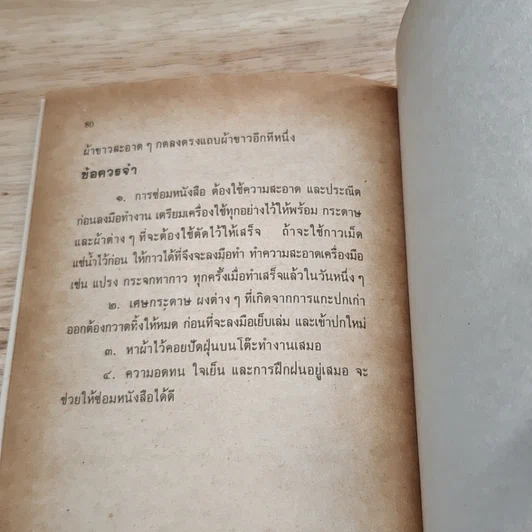 80
ผ้าขาวสะอาด ๆ กดลงตรงแถบผ้าขาวอีกทีหนึ่ง
ข้อควรจำ
๑. การซ่อมหนังสือ ต้องใช้ความสะอาด และประณีต
ก่อนลงมือทำงาน เตรียมเครื่องใช้ทุกอย่างไว้ให้พร้อม กระดาษ
และผ้าต่าง ๆ ที่จะต้องใช้ตัดไว้ให้เสร็จ ถ้าจะใช้กาวเม็ด
แช่น้ำไว้ก่อน ให้กาวได้ที่จึงจะลงมือทำ ทำความสะอาดเครื่องมือ
เช่น แปรง กระจกทากาว ทุกครั้งเมื่อทำเสร็จแล้วในวันหนึ่ง ๆ
๒. เศษกระดาษ ผงต่าง ๆ ที่เกิดจากการแกะปกเก่า
ออกต้องกวาดทิ้งให้หมด ก่อนที่จะลงมือเย็บเล่ม และเข้าปกใหม่
๓. หาผ้าไว้คอยปัดฝุ่นบนโต๊ะทำงานเสมอ
๔. ความอดทน ใจเย็น และการฝึกฝนอยู่เสมอ จะ
ช่วยให้ซ่อมหนังสือได้ดี